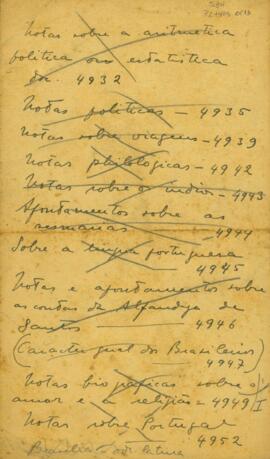 Notas sobre a aritmetica
politica ou estatistica
doc. 4932
Notas politicas — 4935
Notas sobre viagens — 4939
Notas philologicas — 4942
Notas sobre os indios — 4943
Apontamentos sobre as
sesmarias — 4944
Sobre a lingua portugueza
4945
Notas e apontamentos sobre
as contas da Alfandega de
Santos — 4946
(Caracter geral dos Brasileiros)
4947
Notas biograficas sobre o
amor e a religião — 4949 I
Notas sobre Portugal
4952